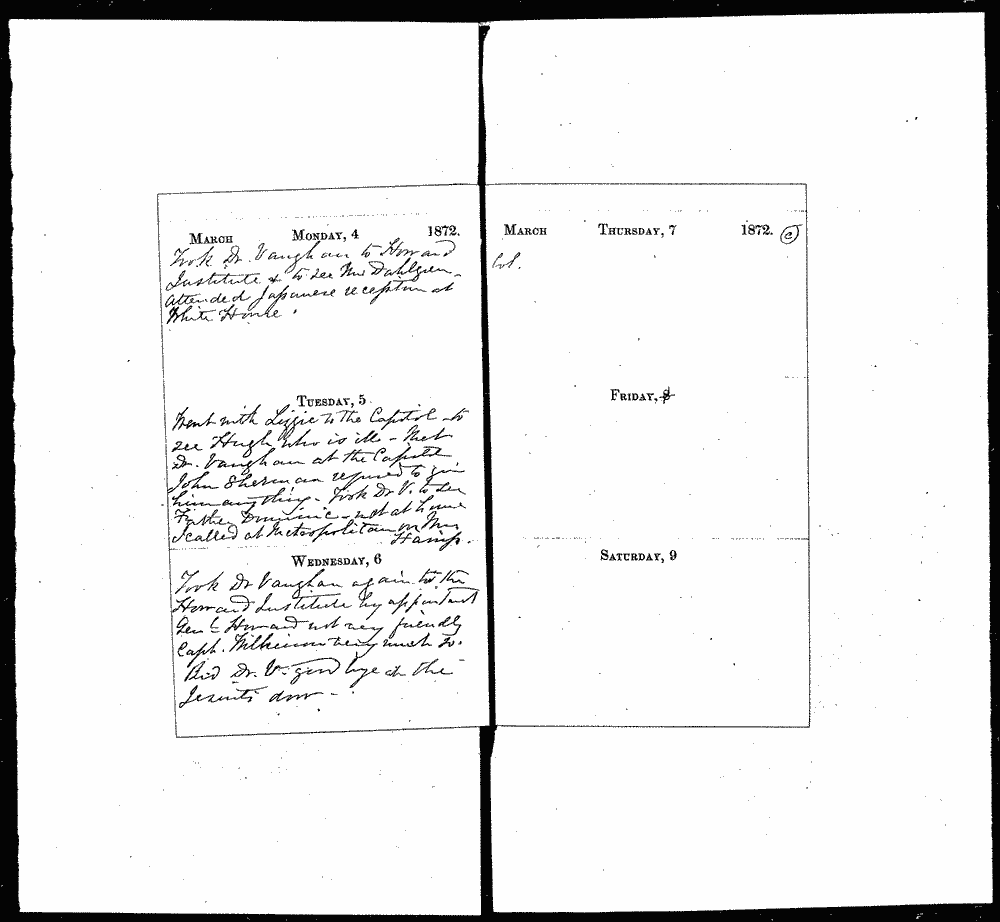 MARCH MONDAY, 4 1872.
Took Dr. Vaughan to Howard
Institute & to see Mrs Dahlgren -
attended Japanese reception at
White House.
TUESDAY, 5.
Went with Lizzie to the Capitol - to
see Hugh who is ill - Met
Dr. Vaughan at the Capitol
John Sherman refused to give
him anything - Took Dr V. to see
Father Dominic - not at home
I called at Metropolitan on Mrs
WEDNESDAY, 6
Took Dr Vaughan again to the
Howard Institute by appointment
Genl Howard not very friendly
Capt. Wilkinson very much so.
Bid Dr. V- good bye at the
Jesuits door -
MARCH THURSDAY, 7 1872.
FRIDAY, 8
SATURDAY, 9